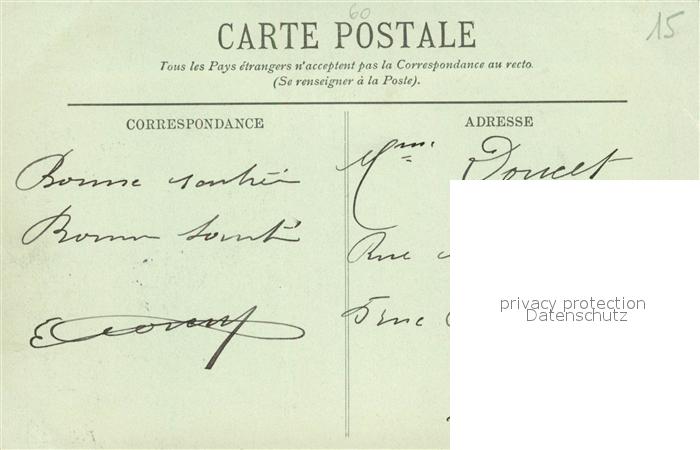 60
15
CARTE POSTALE
Tous les Pays étrangers n'acceptent pas la Correspondance au recto.
(Se renseigner à la Poste).
CORRESPONDANCE
Bonne
Bonne Santé
ADRESSE
Mme Doucet
Rue
privacy protection
Datenschutz